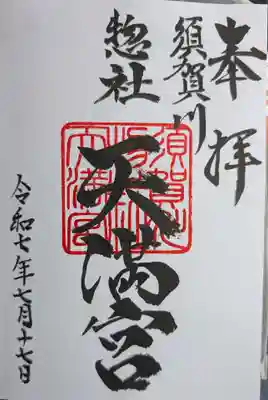 奉拝
須賀川
惣社
天満宮
令和七年七月十七日